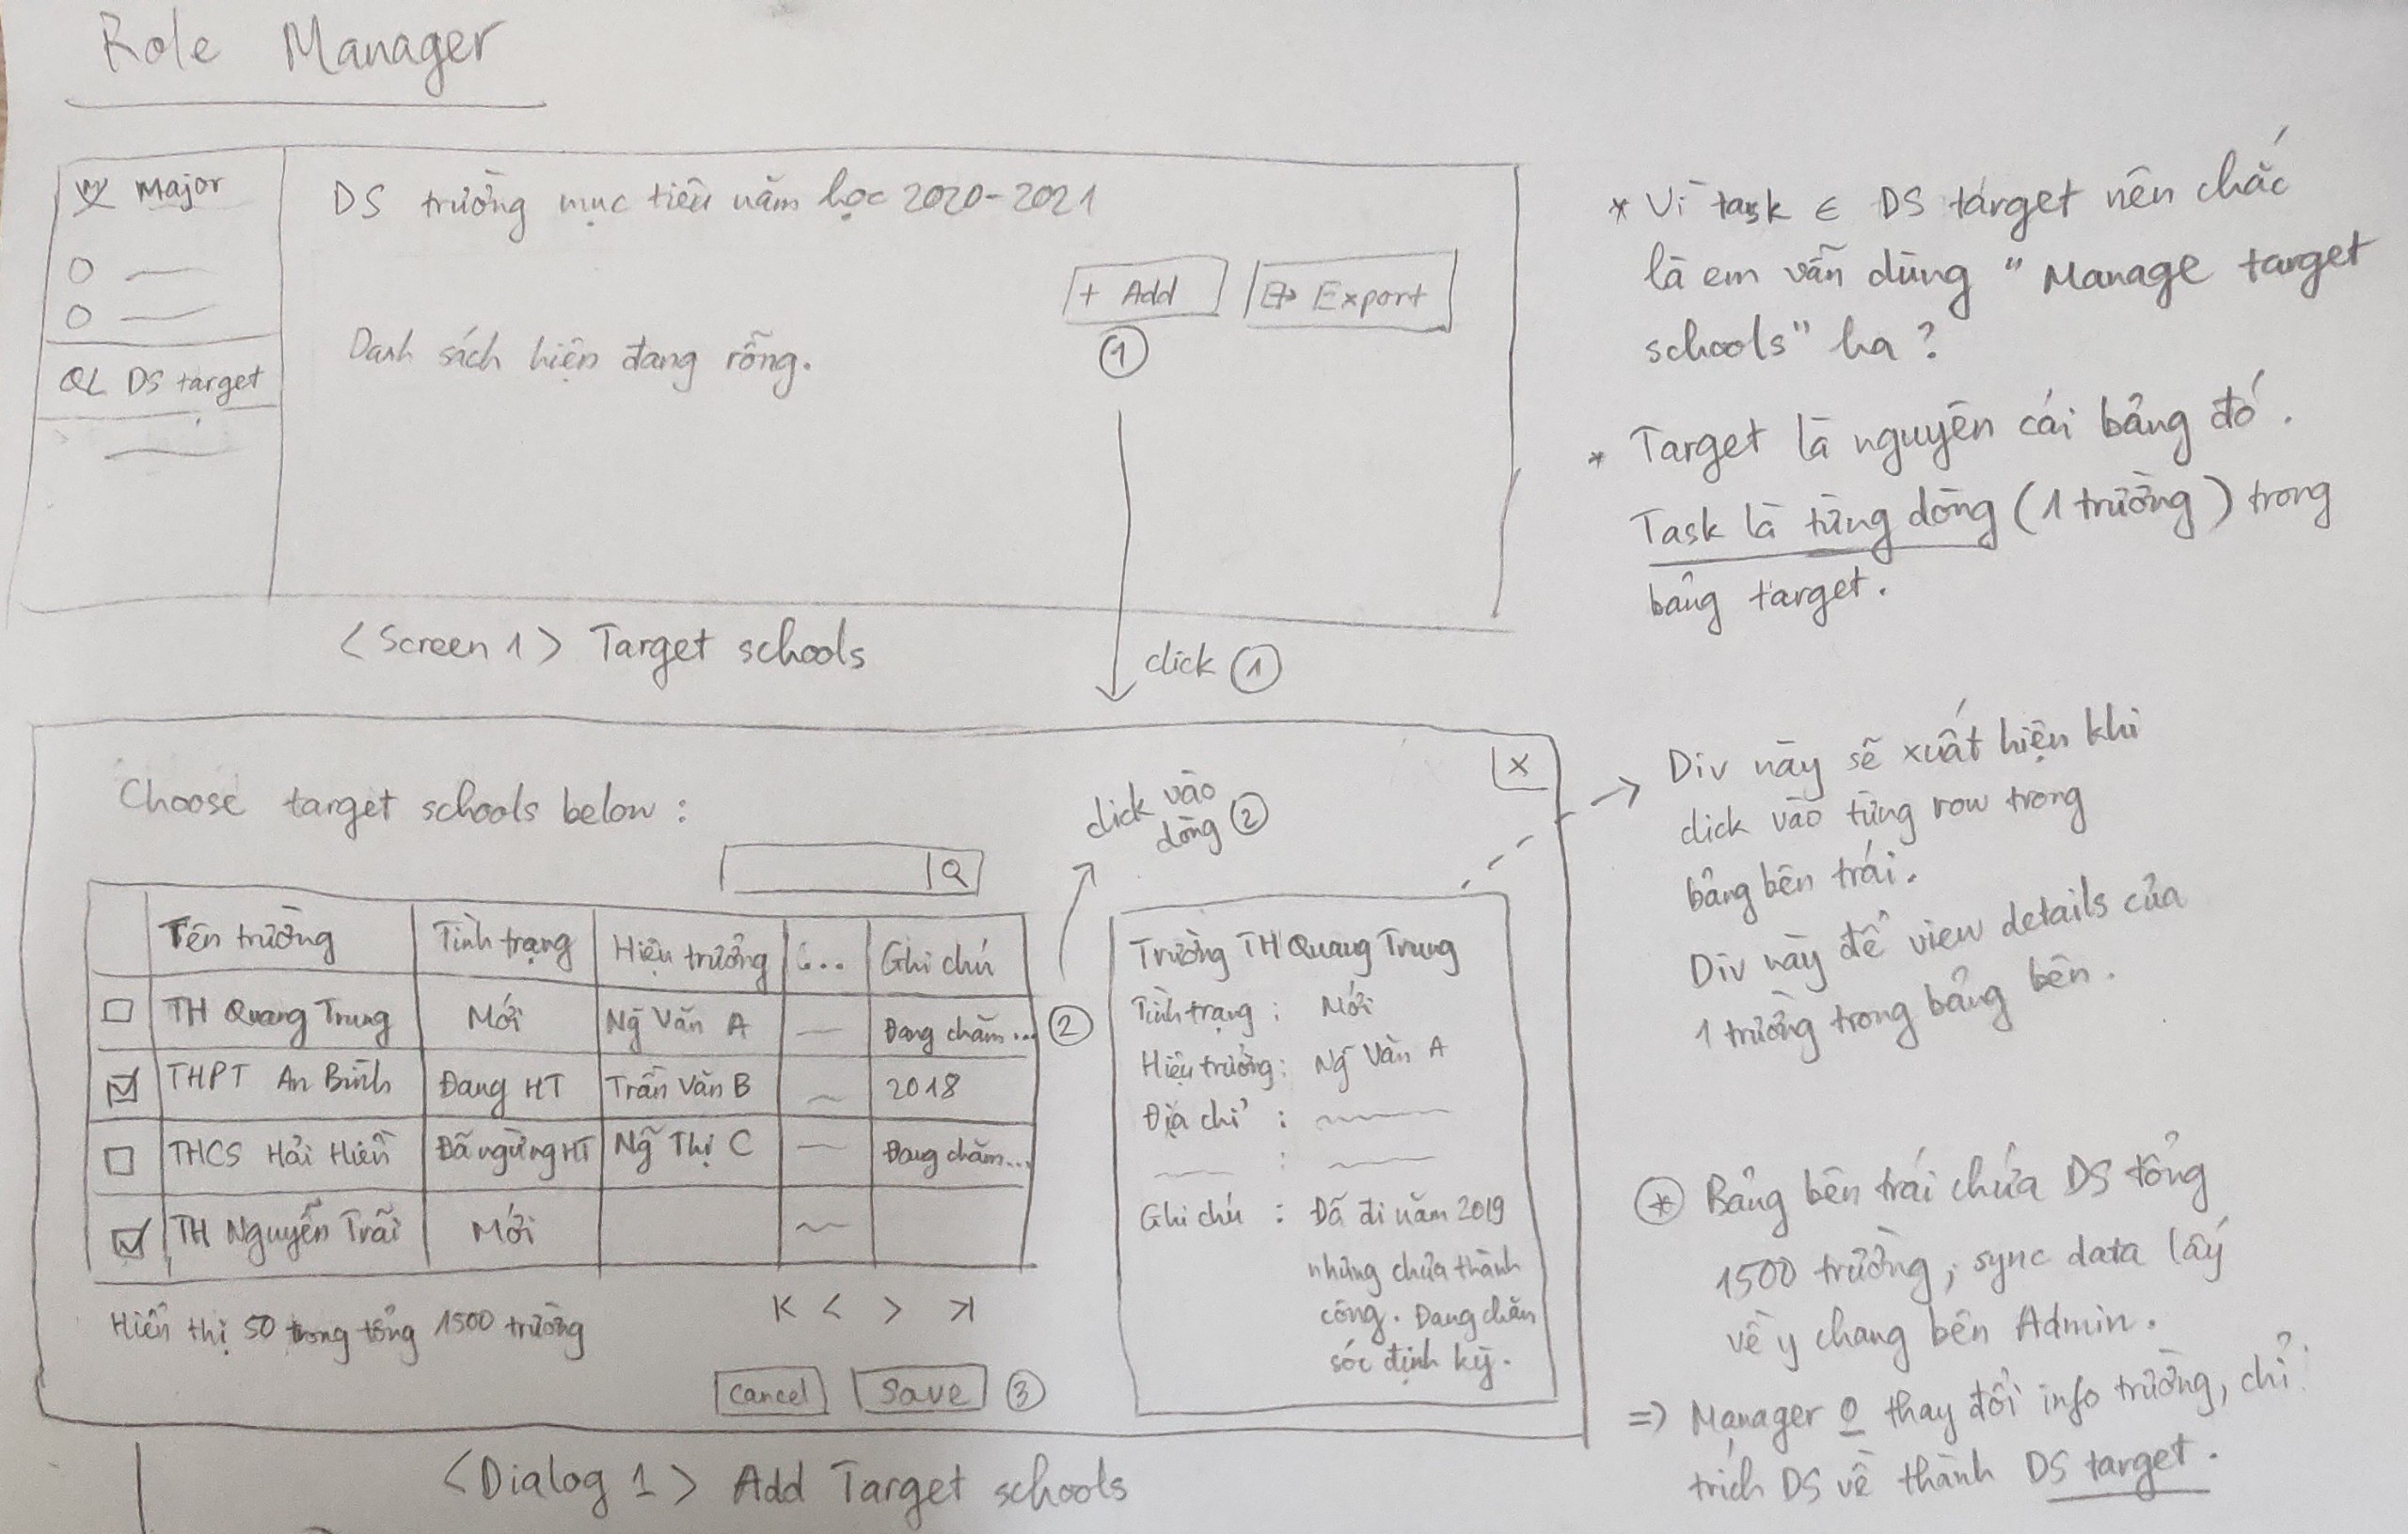 Role Manager
Major
DS trường mục tiêu năm học 2020-2021
+ Add
Export
1
Danh sách hiện đang rỗng.
QL DS target
<Screen 1> Target schools
click 1
* Vì task ∈ DS target nên chắc
là em vẫn dùng "Manage target
schools" ha?
* Target là nguyên cái bảng đó.
Task là từng dòng (1 trường) trong
bảng target.
Choose target schools below:
X
click vào
dòng 2
Tên trường Tình trạng Hiệu trưởng ... Ghi chú
TH Quang Trung Mới Ng~ Văn A Đang chăm... 2
THPT An Bình Đang HT Trần Văn B 2018
THCS Hải Hiền Đã ngừng HT Ng~ Thị C Đang chăm...
TH Nguyễn Trãi Mới
Hiển thị 50 trong tổng 1500 trường
K < > >|
Cancel Save 3
Trường TH Quang Trung
Tình trạng: Mới
Hiệu trưởng: Ng~ Văn A
Địa chỉ:
:
Ghi chú: Đã đi năm 2019
nhưng chưa thành
công. Đang chăm
sóc định kỳ.
<Dialog 1> Add Target schools
→ Div này sẽ xuất hiện khi
click vào từng row trong
bảng bên trái.
Div này để view details của
1 trường trong bảng bên.
* Bảng bên trái chứa DS tổng
1500 trường, sync data lấy
về y chang bên Admin.
=> Manager 0 thay đổi info trường, chỉ
trích DS về thành DS target.